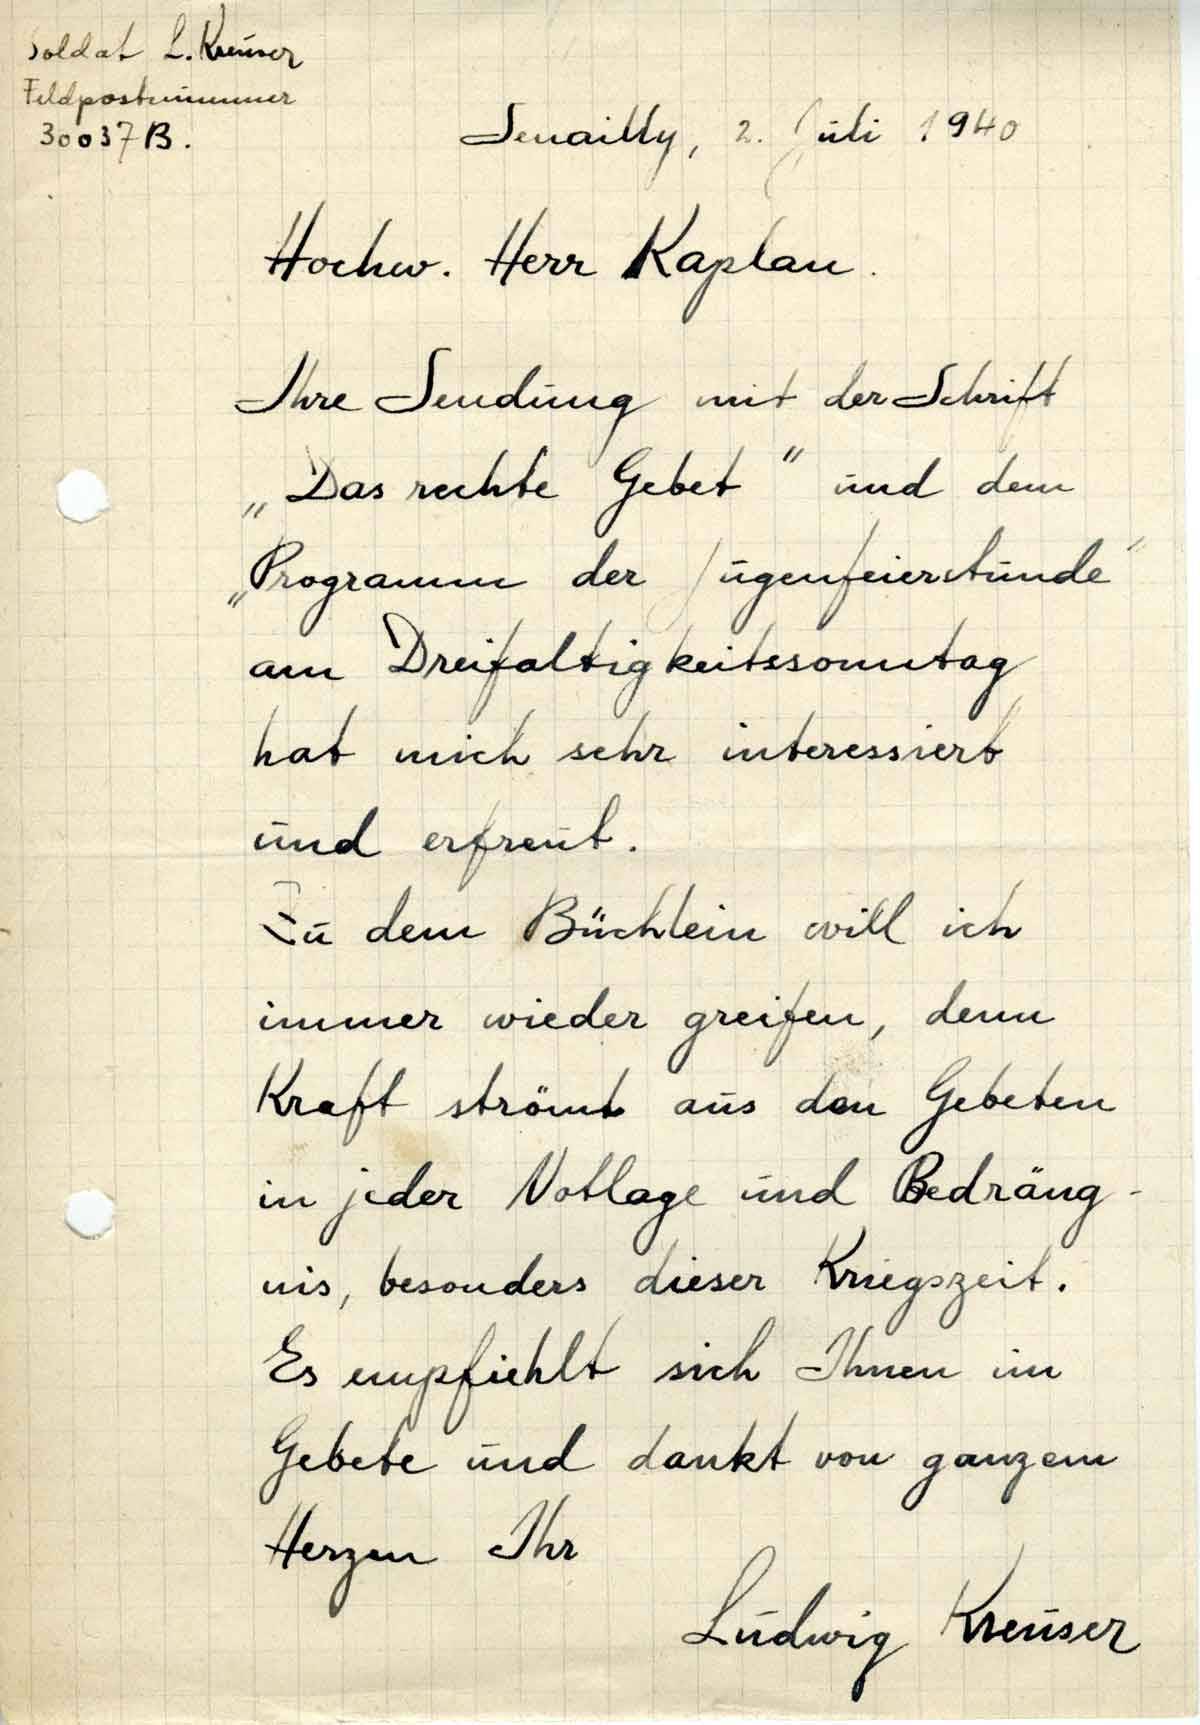 Soldat L. Kreuser
Feldpostnummer
30037B.
Senailly, 2. Juli 1940
Hochw. Herr Kaplan.
Ihre Sendung mit der Schrift
„Das rechte Gebet" und dem
„Programm der Jugenfeierstunde"
am Dreifaltigkeitssonntag
hat mich sehr interessiert
und erfreut.
Zu dem Büchlein will ich
immer wieder greifen, denn
Kraft strömt aus den Gebeten
in jeder Notlage und Bedräng-
nis, besonders dieser Kriegszeit.
Es empfiehlt sich Ihnen im
Gebete und dankt von ganzem
Herzen Ihr
Ludwig Kreuser